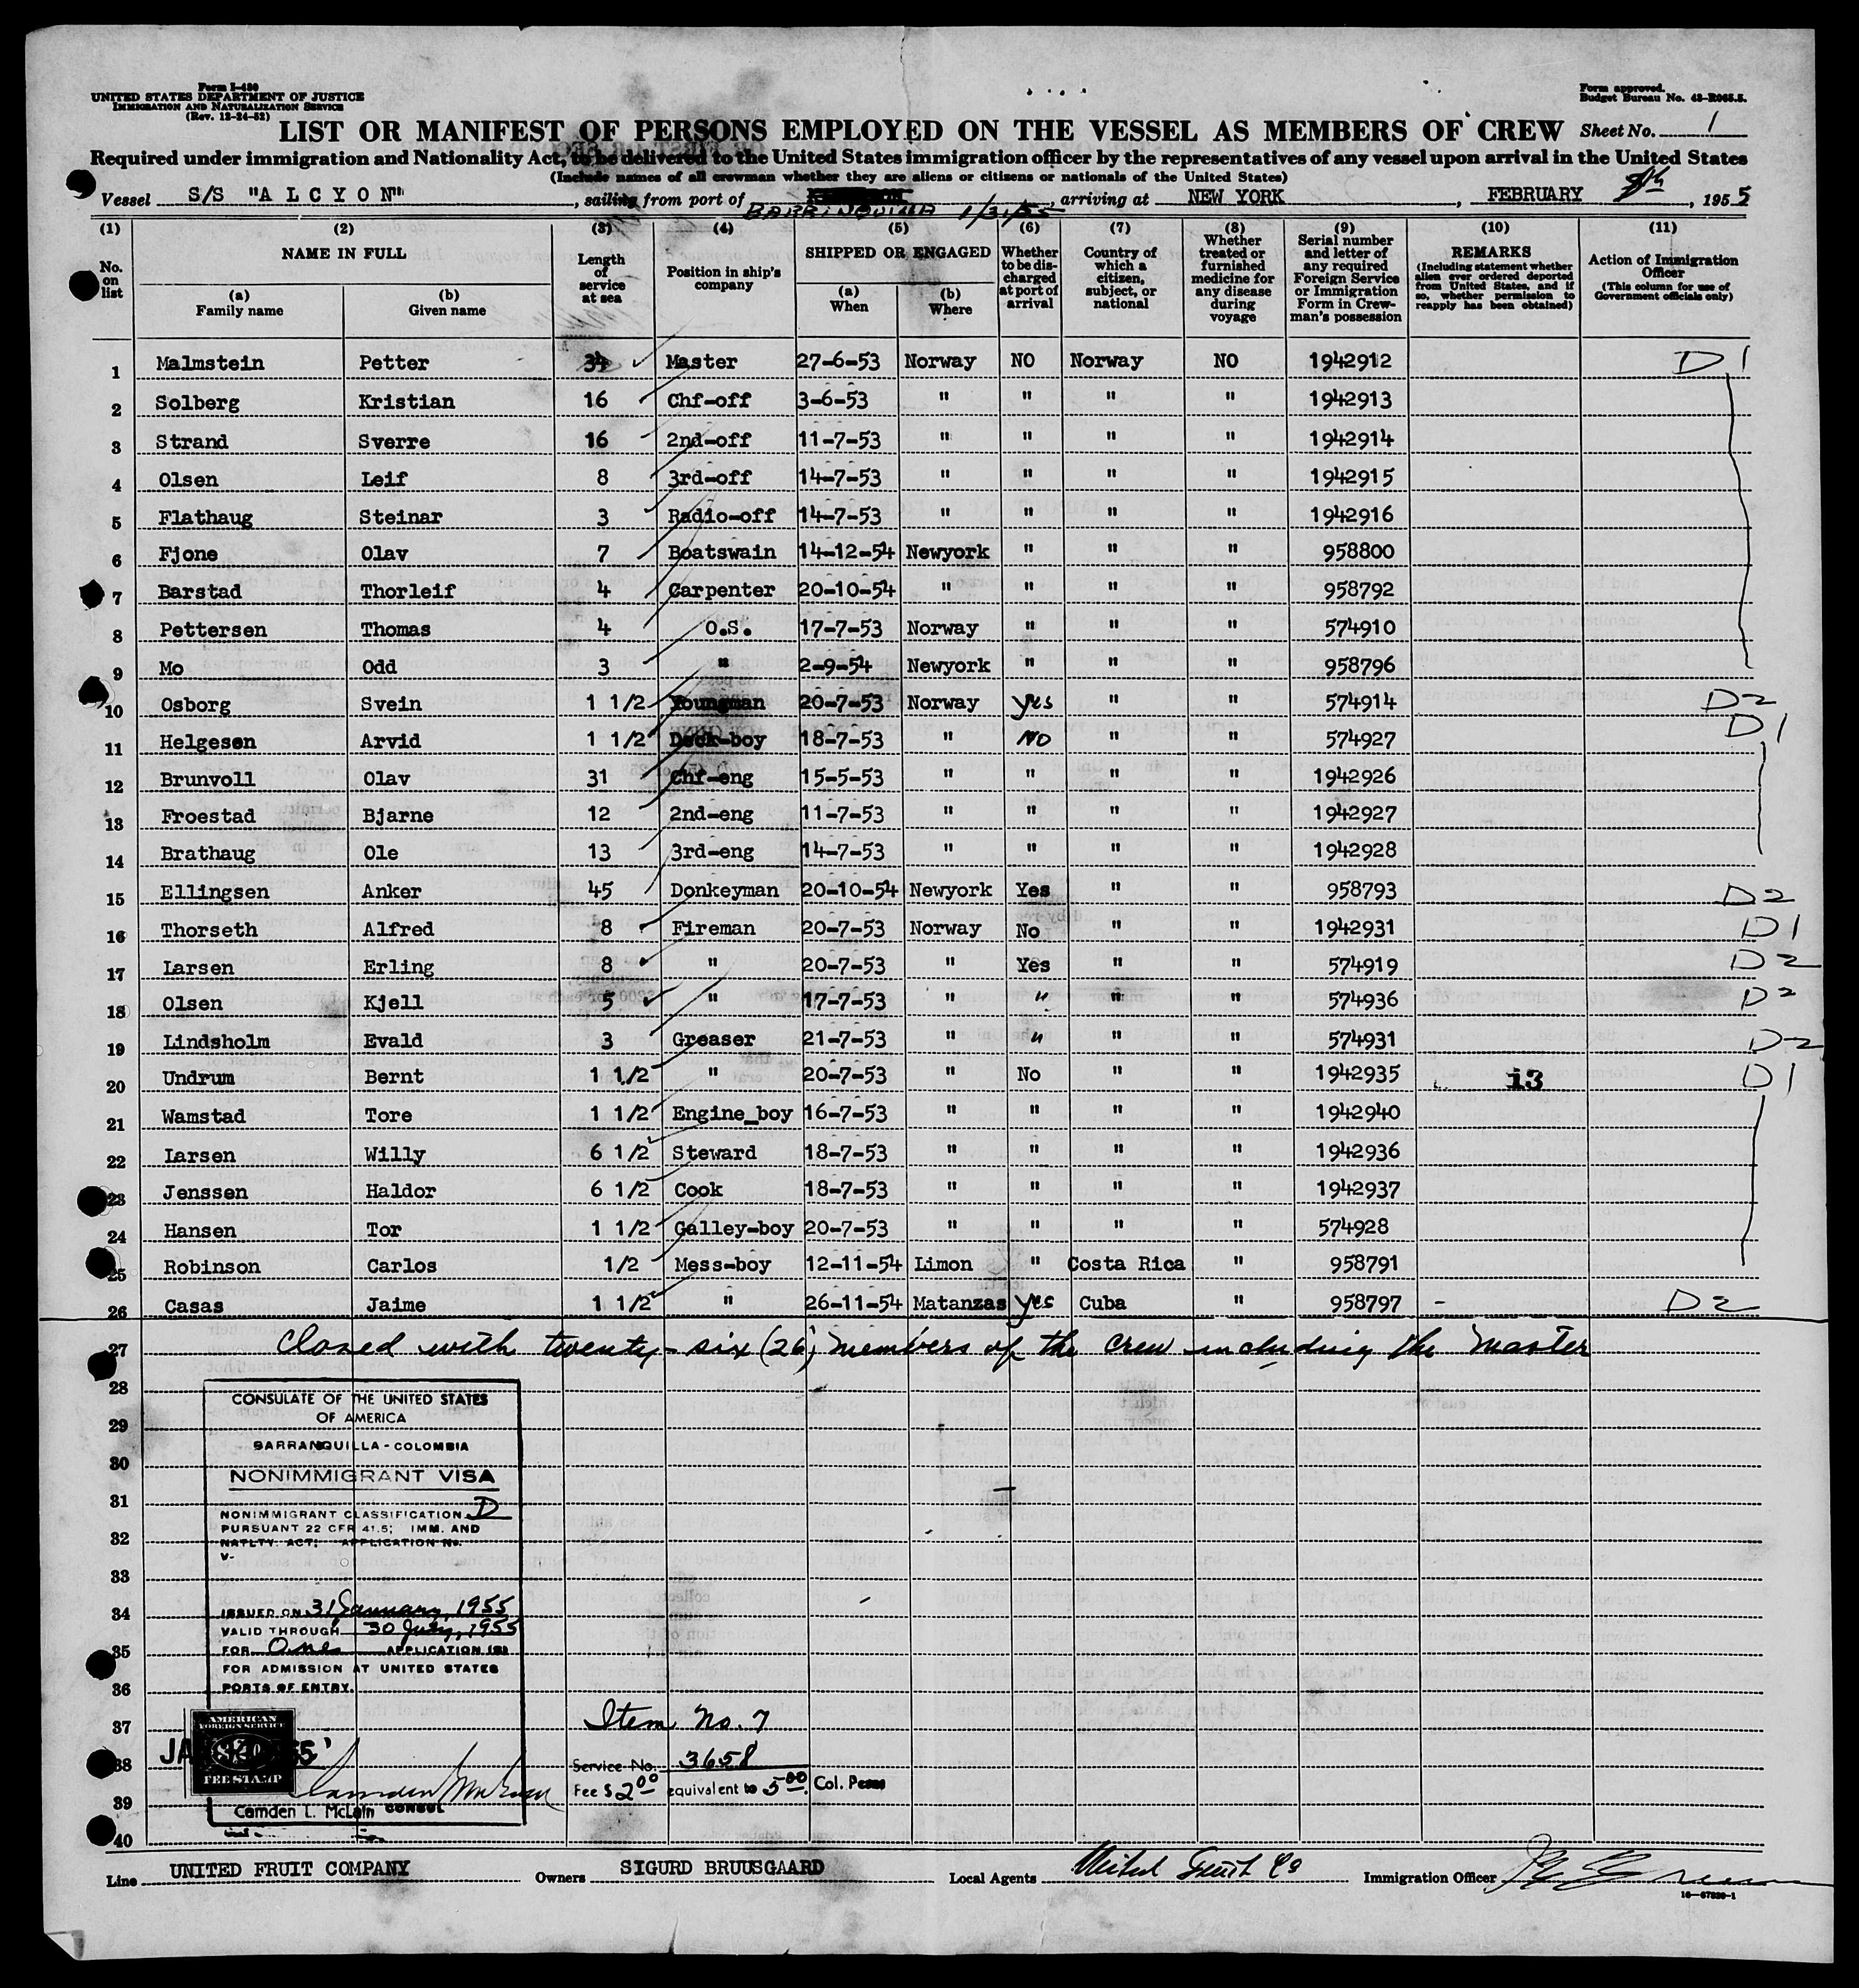 Form I-480
UNITED STATES DEPARTMENT OF JUSTICE
IMMIGRATION AND NATURALIZATION SERVICE
(Rev. 12-24-52)
Form approved.
Budget Bureau No. 43-R065.5.
LIST OR MANIFEST OF PERSONS EMPLOYED ON THE VESSEL AS MEMBERS OF CREW Sheet No. 1
Required under immigration and Nationality Act, to be delivered to the United States immigration officer by the representatives of any vessel upon arrival in the United States
(Include names of all crewman whether they are aliens or citizens or nationals of the United States)
Vessel S/S "A L C Y O N", sailing from port of BARRINQUILLA 1/31/55, arriving at NEW YORK, FEBRUARY 8th, 1955
(1) (2) (3) (4) (5) (6) (7) (8) (9) (10) (11)
No. on list
NAME IN FULL
(a) Family name
(b) Given name
Length of service at sea
Position in ship's company
SHIPPED OR ENGAGED
(a) When
(b) Where
Whether to be discharged at port of arrival
Country of which a citizen, subject, or national
Whether treated or furnished medicine for any disease during voyage
Serial number and letter of any required Foreign Service or Immigration Form in Crewman's possession
REMARKS
(Including statement whether alien ever ordered deported from United States, and if so, whether permission to reapply has been obtained)
Action of Immigration Officer
(This column for use of Government officials only)
1 Malmstein Petter 34 Master 27-6-53 Norway NO Norway NO 1942912 D1
2 Solberg Kristian 16 Chf-off 3-6-53 " " " " 1942913
3 Strand Sverre 16 2nd-off 11-7-53 " " " " 1942914
4 Olsen Leif 8 3rd-off 14-7-53 " " " " 1942915
5 Flathaug Steinar 3 Radio-off 14-7-53 " " " " 1942916
6 Fjone Olav 7 Boatswain 14-12-54 Newyork " " " 958800
7 Barstad Thorleif 4 Carpenter 20-10-54 " " " " 958792
8 Pettersen Thomas 4 O.S. 17-7-53 Norway " " " 574910
9 Mo Odd 3 " 2-9-54 Newyork " " " 958796
10 Osborg Svein 1 1/2 Youngman 20-7-53 Norway yes " " 574914 D2
11 Helgesen Arvid 1 1/2 Deck-boy 18-7-53 " NO " " 574927 D1
12 Brunvoll Olav 31 Chf-eng 15-5-53 " " " " 1942926
13 Froestad Bjarne 12 2nd-eng 11-7-53 " " " " 1942927
14 Brathaug Ole 13 3rd-eng 14-7-53 " " " " 1942928
15 Ellingsen Anker 45 Donkeyman 20-10-54 Newyork Yes " " 958793 D2
16 Thorseth Alfred 8 Fireman 20-7-53 Norway No " " 1942931 D1
17 Larsen Erling 8 " 20-7-53 " Yes " " 574919 D2
18 Olsen Kjell 5 " 17-7-53 " " " " 574936 D2
19 Lindsholm Evald 3 Greaser 21-7-53 " " " " 574931 D2
20 Undrum Bernt 1 1/2 " 20-7-53 " No " " 1942935 13 D1
21 Wamstad Tore 1 1/2 Engine_boy 16-7-53 " " " " 1942940
22 Larsen Willy 6 1/2 Steward 18-7-53 " " " " 1942936
23 Jenssen Haldor 6 1/2 Cook 18-7-53 " " " " 1942937
24 Hansen Tor 1 1/2 Galley-boy 20-7-53 " " " " 574928
25 Robinson Carlos 1/2 Mess-boy 12-11-54 Limon " Costa Rica " 958791
26 Casas Jaime 1 1/2 " 26-11-54 Matanzas yes Cuba " 958797 - D2
27 Closed with twenty-six (26) members of the crew including the Master
28
29
30
31
32
33
34
35
36
37
38
39
40
CONSULATE OF THE UNITED STATES
OF AMERICA
BARRANQUILLA - COLOMBIA
NONIMMIGRANT VISA
NONIMMIGRANT CLASSIFICATION D
PURSUANT 22 CFR 41.5; IMM. AND
NATLTY. ACT; APPLICATION No.
V-
ISSUED ON 31 January, 1955
VALID THROUGH 30 July, 1955
FOR One APPLICATION (S)
FOR ADMISSION AT UNITED STATES
PORTS OF ENTRY.
AMERICAN
FOREIGN SERVICE
FEE STAMP
Camden L. McLain CONSUL
Item No. 7
Service No. 3658
Fee $ 2.00 equivalent to 5.00 Col. Pesos
Line UNITED FRUIT COMPANY Owners SIGURD BRUUSGAARD Local Agents United Fruit Co Immigration Officer
16-67820-1